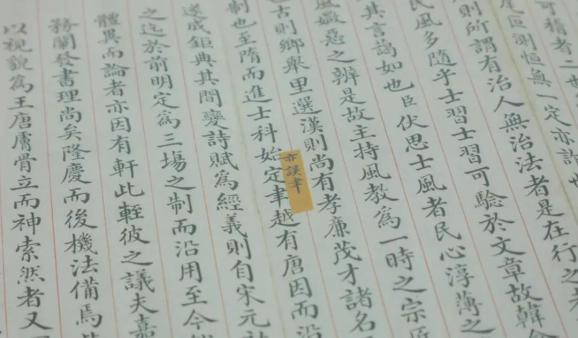 可稽者二
叵測恒無一定亦許
則所謂有治人無治法者是在行之者
民風多隨乎士習士習可驗於文章故韓
其言藹如也臣伏思士風者民心淳薄之
風媺惡之辨是故主持風教為一時之宗匠
古則鄉舉里選漢則尚有孝廉茂才諸名
亦誤聿
制也至隋而進士科始定聿越有唐因而沿
遂成鉅典其間變詩賦為經義則自宋元
之迄於前明定為三場之制而沿用至今
體異而論者亦因有軒此輊彼之議夫嘉
務闡發書理尚矣隆慶而後機法備焉
以視貌為王唐膚骨立而神索然者又